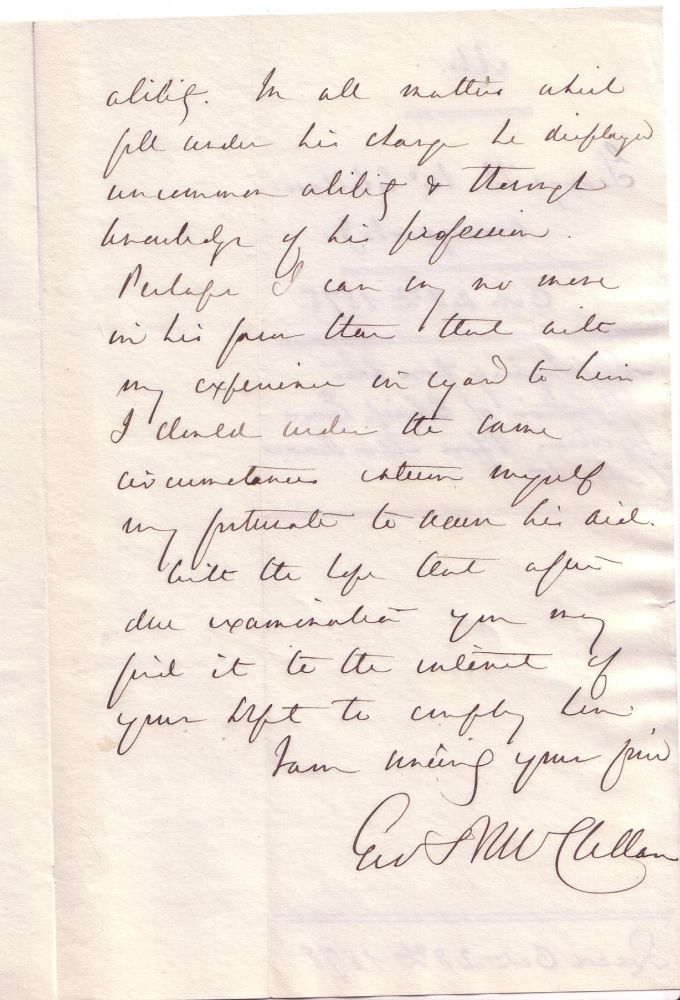 ability. In all matters which
fell under his charge he displayed
uncommon ability & thorough
knowledge of his profession.
Perhaps I can say no more
in his favor than that with
my experience in regard to him
I should under the same
circumstances esteem myself
very fortunate to secure his aid.
With the hope that after
due examination you may
find it to the interest of
your Dept to employ him
I am sincerely your friend
Geo B McClellan